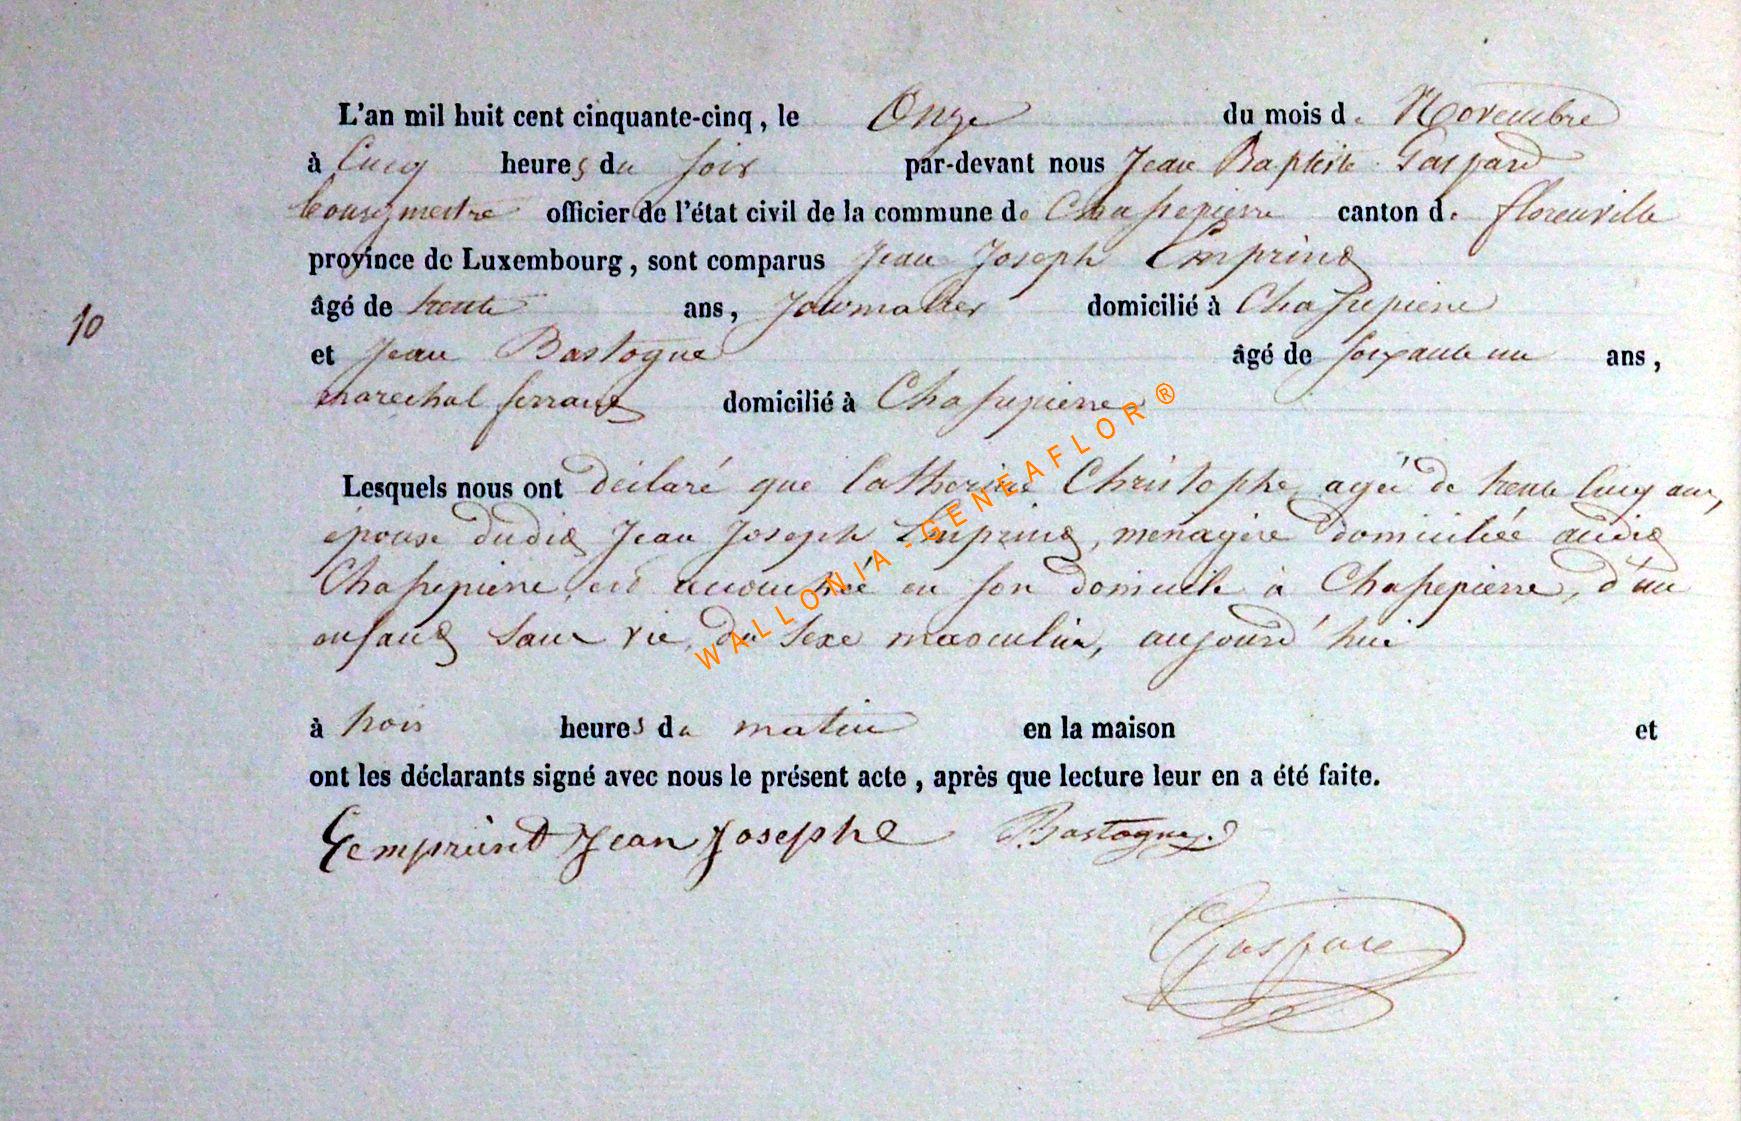 L'an mil huit cent cinquante-cinq, le Onze du mois de Novembre
à Cinq heures du soir par-devant nous Jean Baptiste Gaspard
bourgmestre officier de l'état civil de la commune de Chassepierre canton de florenville
province de Luxembourg, sont comparus Jean Joseph Emprind
âgé de trente ans, Journalier domicilié à Chassepierre
10
et Jean Bastogne âgé de soixante un ans,
marechal ferrant domicilié à Chassepierre
Lesquels nous ont déclaré que Catherine Christophe, agée de trente Cinq ans,
épouse dudit Jean Joseph Emprind, menagère domiciliée audit
Chassepierre, est accouchée en son domicile à Chassepierre, d'un
enfant sans vie, du sexe masculin, aujourd'hui
à trois heures du matin en la maison et
ont les déclarants signé avec nous le présent acte, après que lecture leur en a été faite.
Jean Josephe Bastogne
Gaspard
WALLONIA-GENEAFLOR®